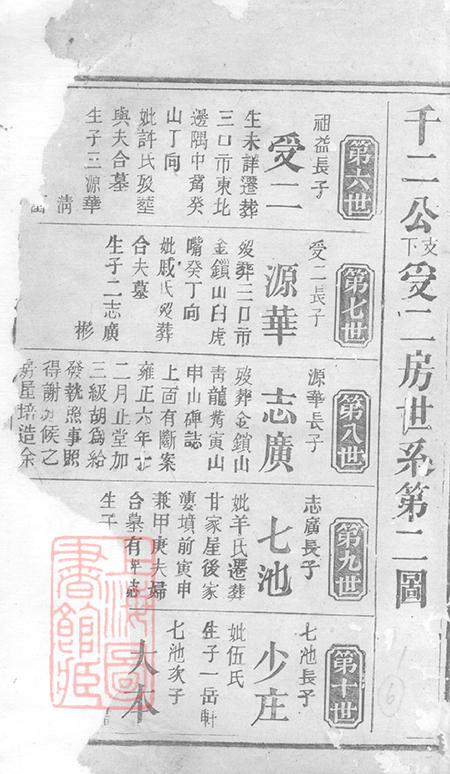 千二公支下受二房世系第二圖
第六世
祖益長子
受二
生未詳遷葬
三口市東北
邊隅中嘴癸
山丁向
妣許氏歿塟
與夫合墓
生子三源華
清
第七世
受二長子
源華
歿葬三口市
金鎖山臼虎
嘴癸丁向
妣戚氏歿葬
合夫墓
生子二志廣
彬
第八世
源華長子
志廣
歿葬金鎖山
青龍嘴寅山
申山碑誌
上面有斷案
雍正六年十
二月止堂加
三級胡爲給
發執照事照
得謝加候之
房屋培造余
第九世
志廣長子
七池
妣羊氏遷葬
甘家屋後家
凄墳前寅申
兼甲庚夫婦
合墓有碑志
生子
第十世
七池長子
少庄
妣伍氏
生子一岳軒
七池次子
大本
6
上海圖書館藏